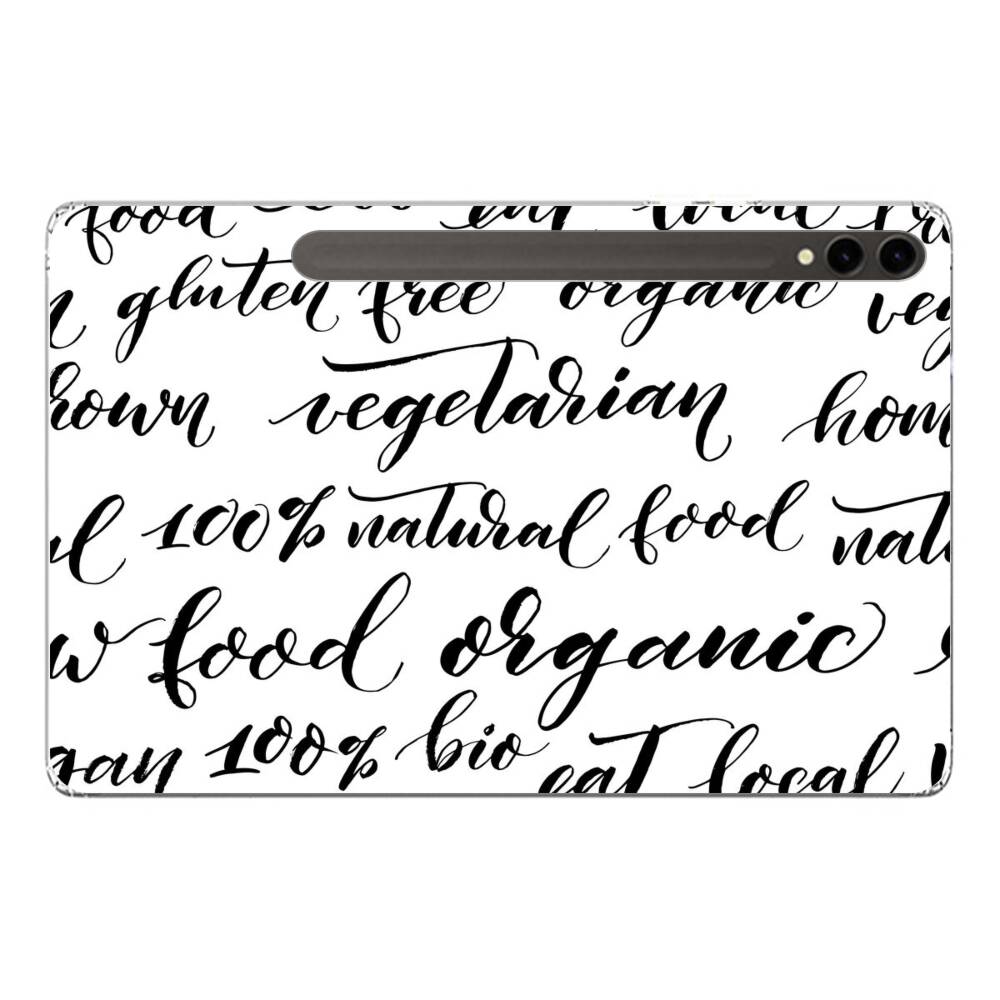 food eat local fr
gluten free organic veg
rown vegetarian hom
al 100% natural food natu
w food organic
gan 100% bio eat local